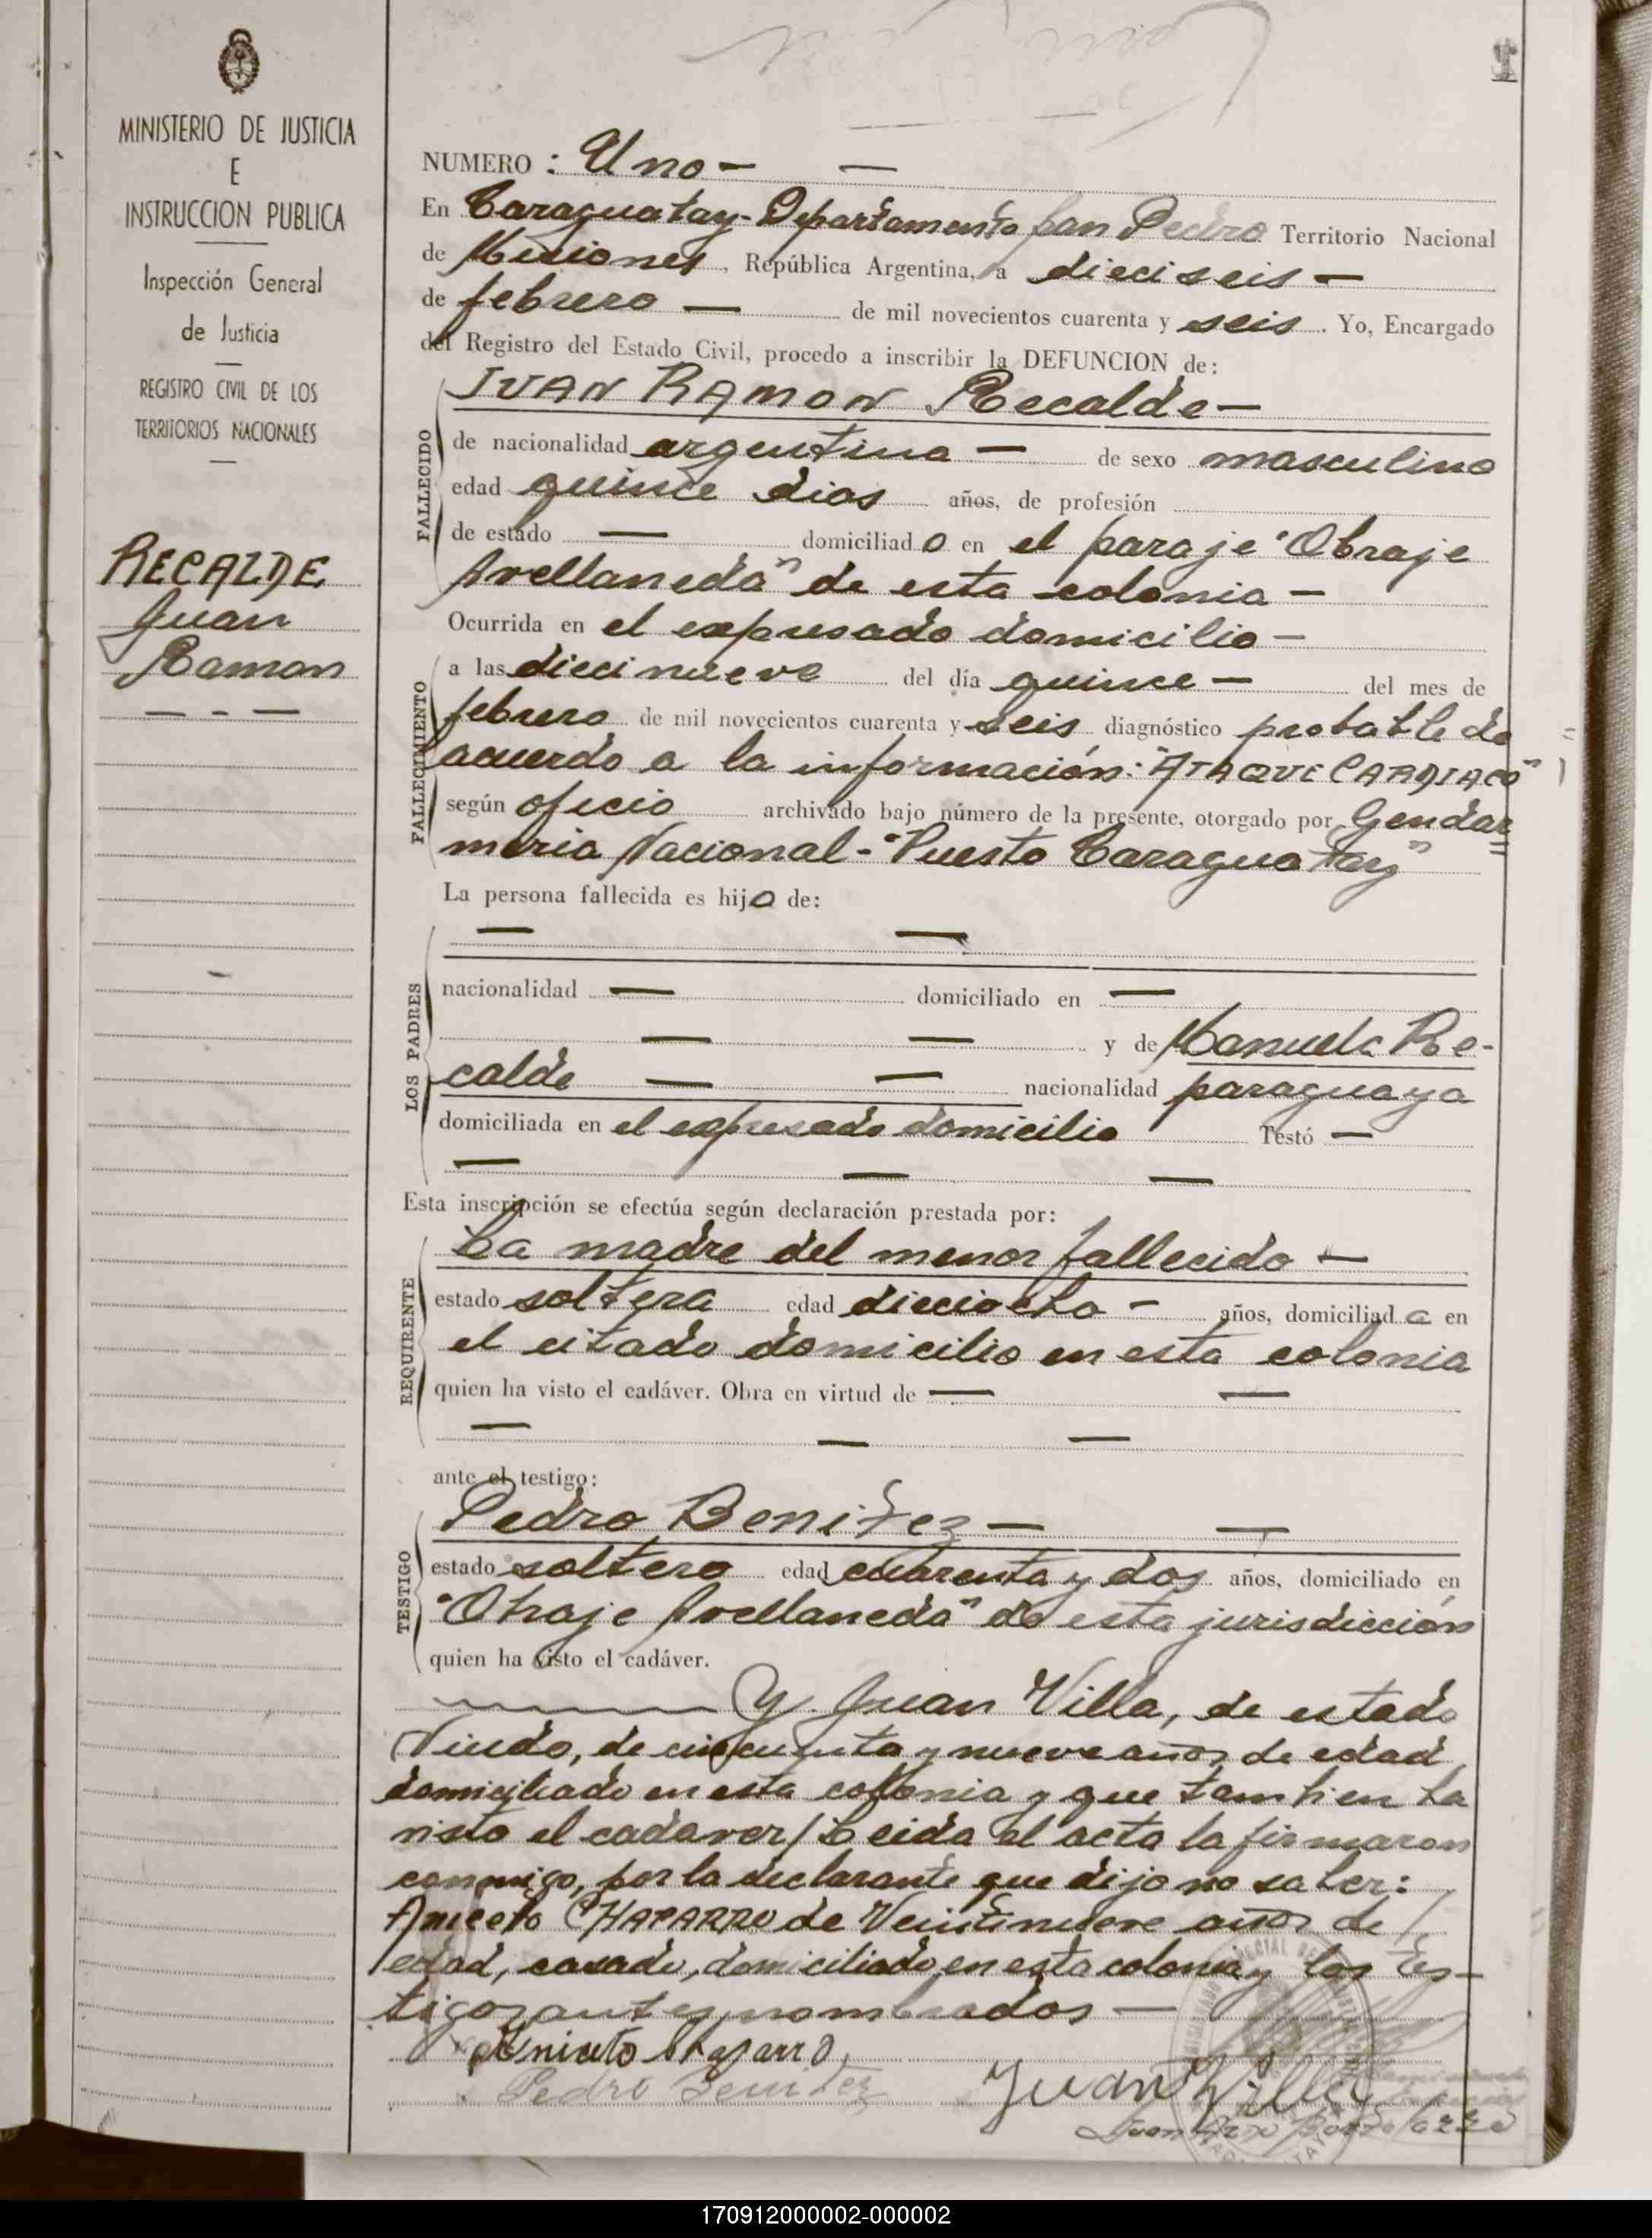 MINISTERIO DE JUSTICIA
E
INSTRUCCION PUBLICA
Inspección General
de Justicia
REGISTRO CIVIL DE LOS
TERRITORIOS NACIONALES
RECALDE
Juan
Ramon
1
NUMERO: Uno -
En Caraguatay - Departamento San Pedro Territorio Nacional
de Misiones, República Argentina, a dieciseis -
de febrero - de mil novecientos cuarenta y seis. Yo, Encargado
del Registro del Estado Civil, procedo a inscribir la DEFUNCION de:
JUAN RAMON Recalde -
FALLECIDO
de nacionalidad argentina - de sexo masculino
edad quince dias años, de profesión
de estado — domiciliado en el paraje "Obraje
Avellaneda" de esta colonia -
Ocurrida en el expresado domicilio -
FALLECIMIENTO
a las diecinueve del día quince - del mes de
febrero de mil novecientos cuarenta y seis, diagnóstico probable de
acuerdo a la información: "ATAQUE CARDIACO"
según oficio archivado bajo número de la presente, otorgado por Gendar=
meria Nacional - "Puesto Caraguatay"
La persona fallecida es hijo de:
LOS PADRES
— —
nacionalidad — domiciliado en —
— — y de Manuela Re-
calde — — nacionalidad paraguaya
domiciliada en el expresado domicilio Testó —
— — —
Esta inscripción se efectúa según declaración prestada por:
REQUIRENTE
La madre del menor fallecido -
estado soltera edad dieciocho - años, domiciliada en
el citado domicilio en esta colonia
quien ha visto el cadáver. Obra en virtud de — —
— — —
ante el testigo:
TESTIGO
Pedro Benitez — —
estado soltero edad cuarenta y dos años, domiciliado en
"Obraje Avellaneda" de esta jurisdicción
quien ha visto el cadáver.
Y Juan Villa, de estado
Viudo, de cincuenta y nueve años de edad
domiciliado en esta colonia y que tambien ha
visto el cadaver/ Leida el acta la firmaron
conmigo, por la declarante que dijo no saber:
Aniceto CHAPARRO de Veintinueve años de
edad, casado, domiciliado en esta colonia y los tes-
tigos antes nombrados —
Aniceto Chaparro
Pedro Benitez Juan Villa
170912000002-000002